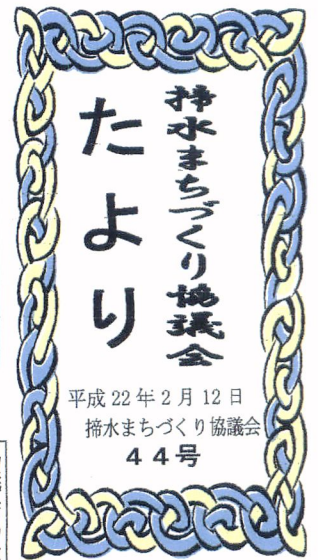 揥水まちづくり協議会
たより
平成22年2月12日
揥水まちづくり協議会
44号